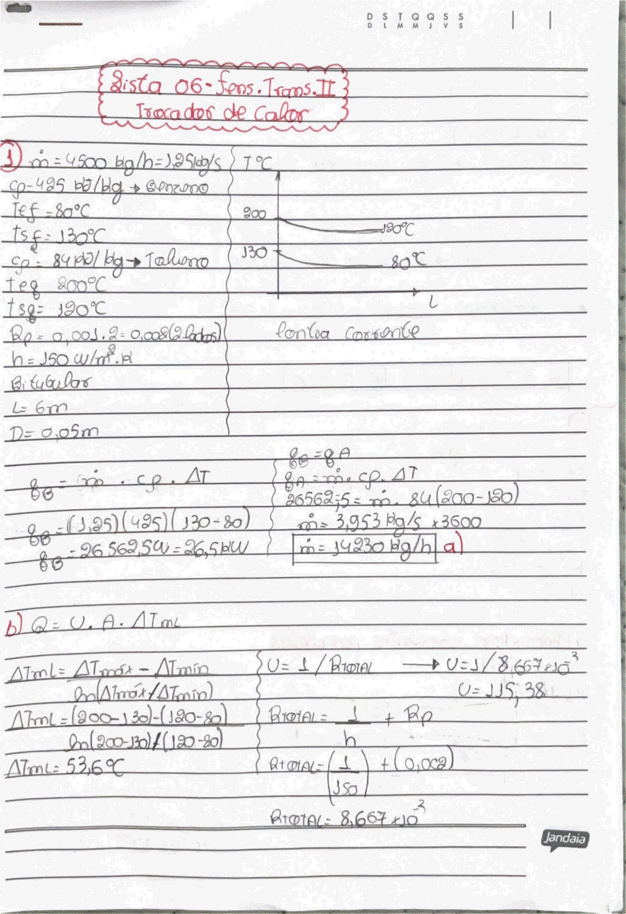 D S T Q Q S S
D L M M J V S
Lista 06 - Fens. Trans. II
Trocador de Calor
1) ṁ = 4500 kg/h = 1,25 kg/s
cp = 425 kJ/kg → Benzeno
Tef = 80°C
tsf = 130°C
cp = 84 kJ/kg → Tolueno
teq 200°C
tsq = 120°C
Rp = 0,001.2 = 0,002 (2 lados)
h = 150 W/m².K
Bitubular
L = 6m
D = 0,05m
T°C
200
120°C
130
80°C
L
Contra corrente
qB = ṁ . cp . ΔT
qB = (1,25)(425)(130-80)
qB = 26562,5W = 26,5kW
qB = qA
qA = ṁ . cp . ΔT
26562,5 = ṁ . 84 (200-120)
ṁ = 3,953 kg/s x3600
ṁ = 14230 kg/h a)
b) Q = U . A . ΔTmL
ΔTmL = ΔTmáx - ΔTmín
ln(ΔTmáx/ΔTmín)
ΔTmL = (200-130)-(120-80)
ln(200-130)/(120-80)
ΔTmL = 53,6°C
U = 1 / RTOTAL → U = 1/8,667x10⁻³
U = 115,38
RTOTAL = 1/h + Rp
RTOTAL = (1/150) + (0,002)
RTOTAL = 8,667x10⁻³
jandaia